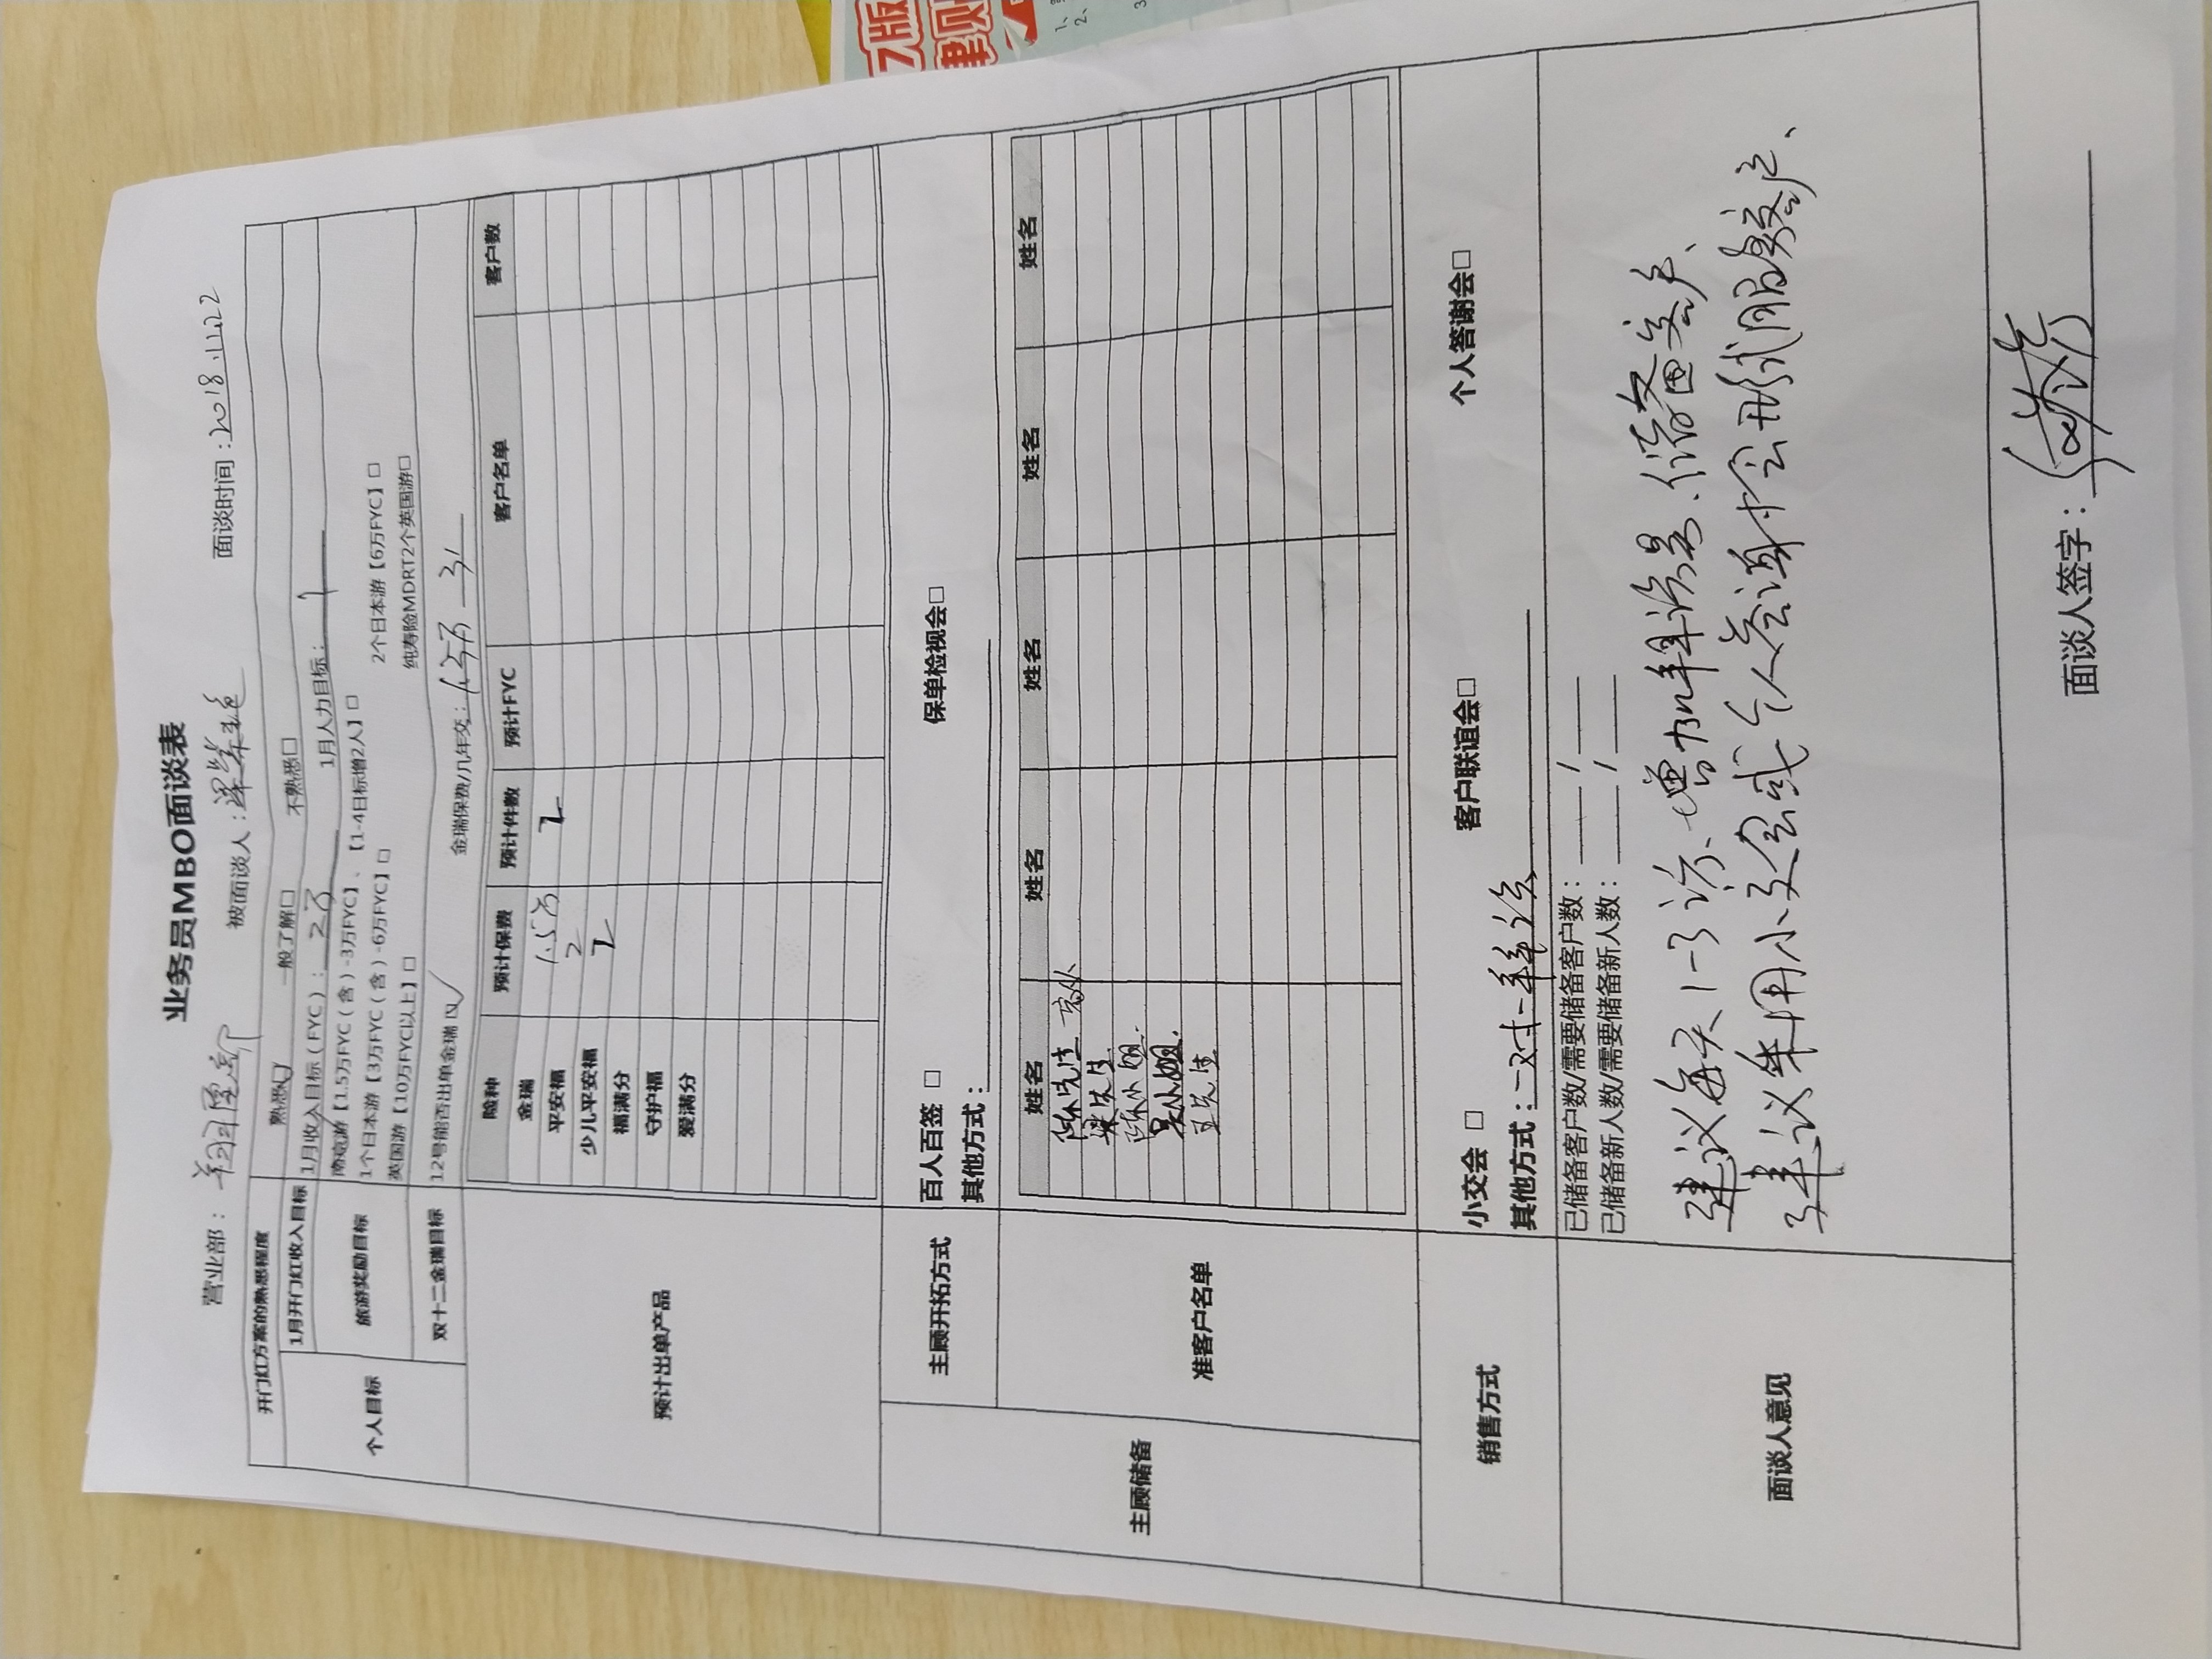 业务员MBO面谈表
营业部：羊羽团 被面谈人：梁 面谈时间：2018.11.22
开门红方案的熟悉程度 熟悉☑ 一般了解□ 不熟悉□
个人目标
1月开门红收入目标 1月收入目标（FYC）：2万 1月人力目标：1
旅游奖励目标
南京游【1.5万FYC（含）-3万FYC】、【1-4日标增2人】□
1个日本游【3万FYC（含）-6万FYC】□ 2个日本游【6万FYC】□
英国游【10万FYC以上】□ 纯寿险MDRT2个英国游□
双十二金瑞目标 12号能否出单金瑞☑ 金瑞保费/几年交：1.5万 3
预计出单产品
险种 预计保费 预计件数 预计FYC 客户名单 客户数
金瑞 1.5万 2
平安福 2
少儿平安福 2
福满分
守护福
爱满分
主顾储备
主顾开拓方式
百人百签 □ 保单检视会□
其他方式：
准客户名单
姓名 姓名 姓名 姓名 姓名
陈先生
梁先生
陈小姐
吴小姐
王先生
销售方式
小交会 □ 客户联谊会□ 个人答谢会□
其他方式：一对一拜访
面谈人意见
已储备客户数/需要储备客户数： /
已储备新人数/需要储备新人数： /
建议每天1-3访、增加拜访量、储备客户、
建议采用小交会或个人答谢会形式服务客户、
面谈人签字：